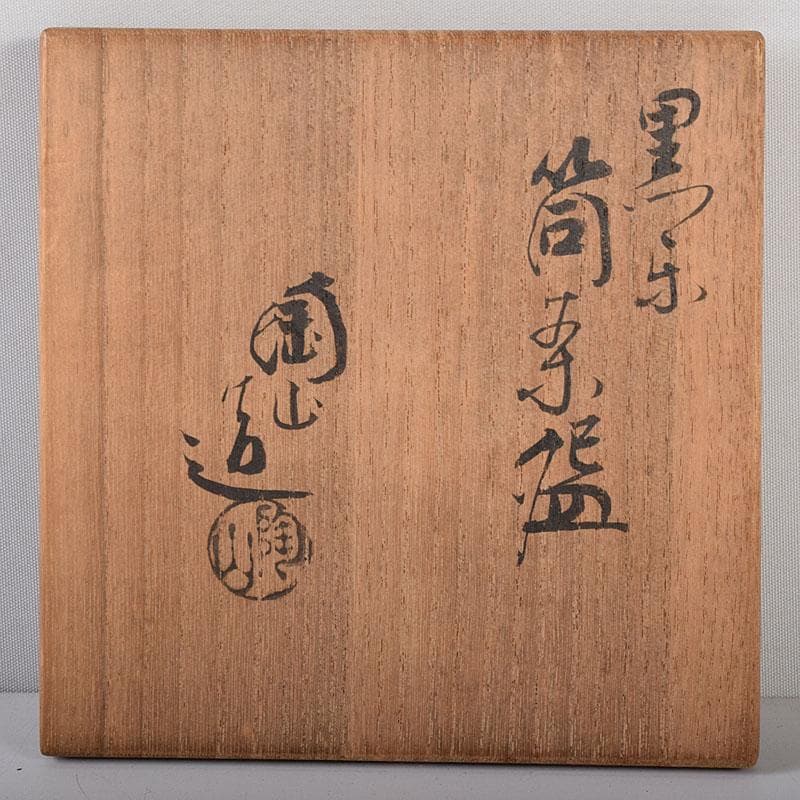 黒楽
筒茶碗
陶山造
陶山